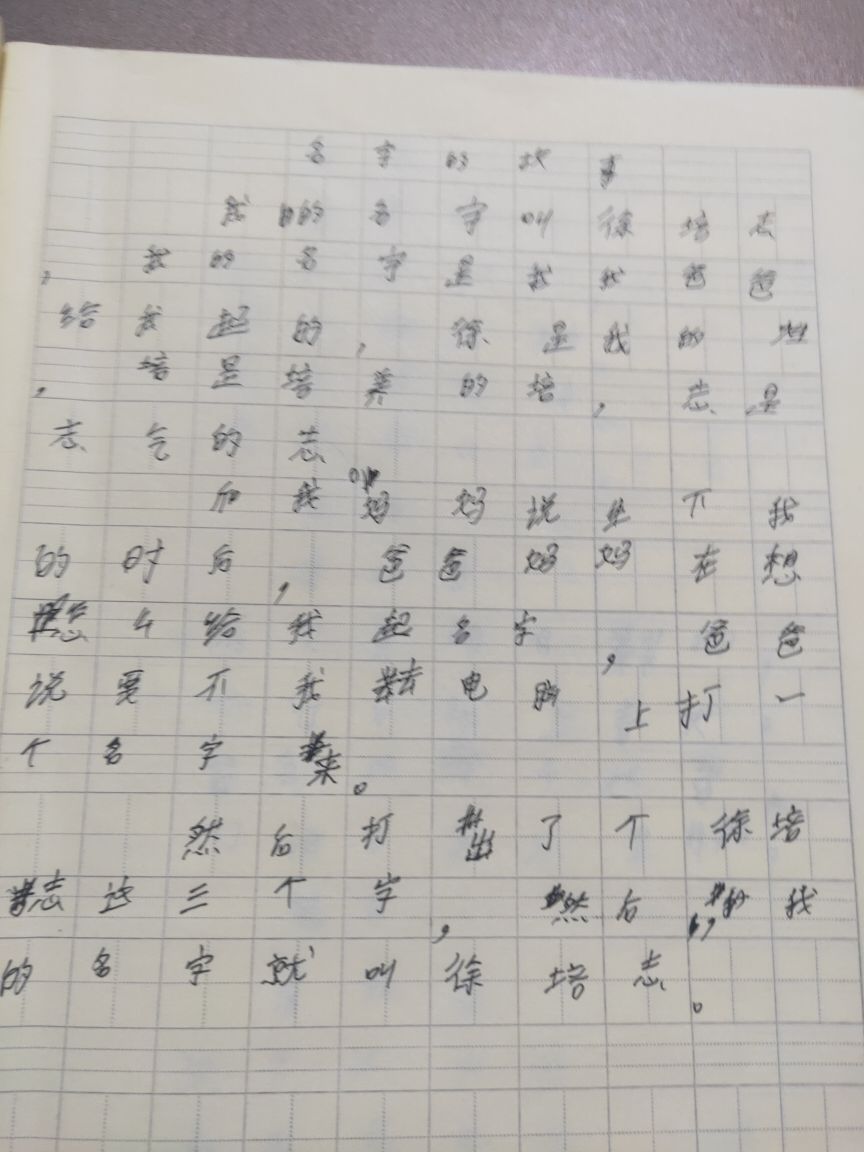 名字的故事
我的名字叫徐培志
，我的名字是我我爸爸
给我起的，徐是我的姓
，培是培养的培，志是
志气的志
我妈妈说生下我
的时后，爸爸妈妈在想
怎么给我起名字，爸爸
说要不我去电脑上打一
个名字来。
然后打出了个徐培
志这三个字，然后，我
的名字就叫徐培志。